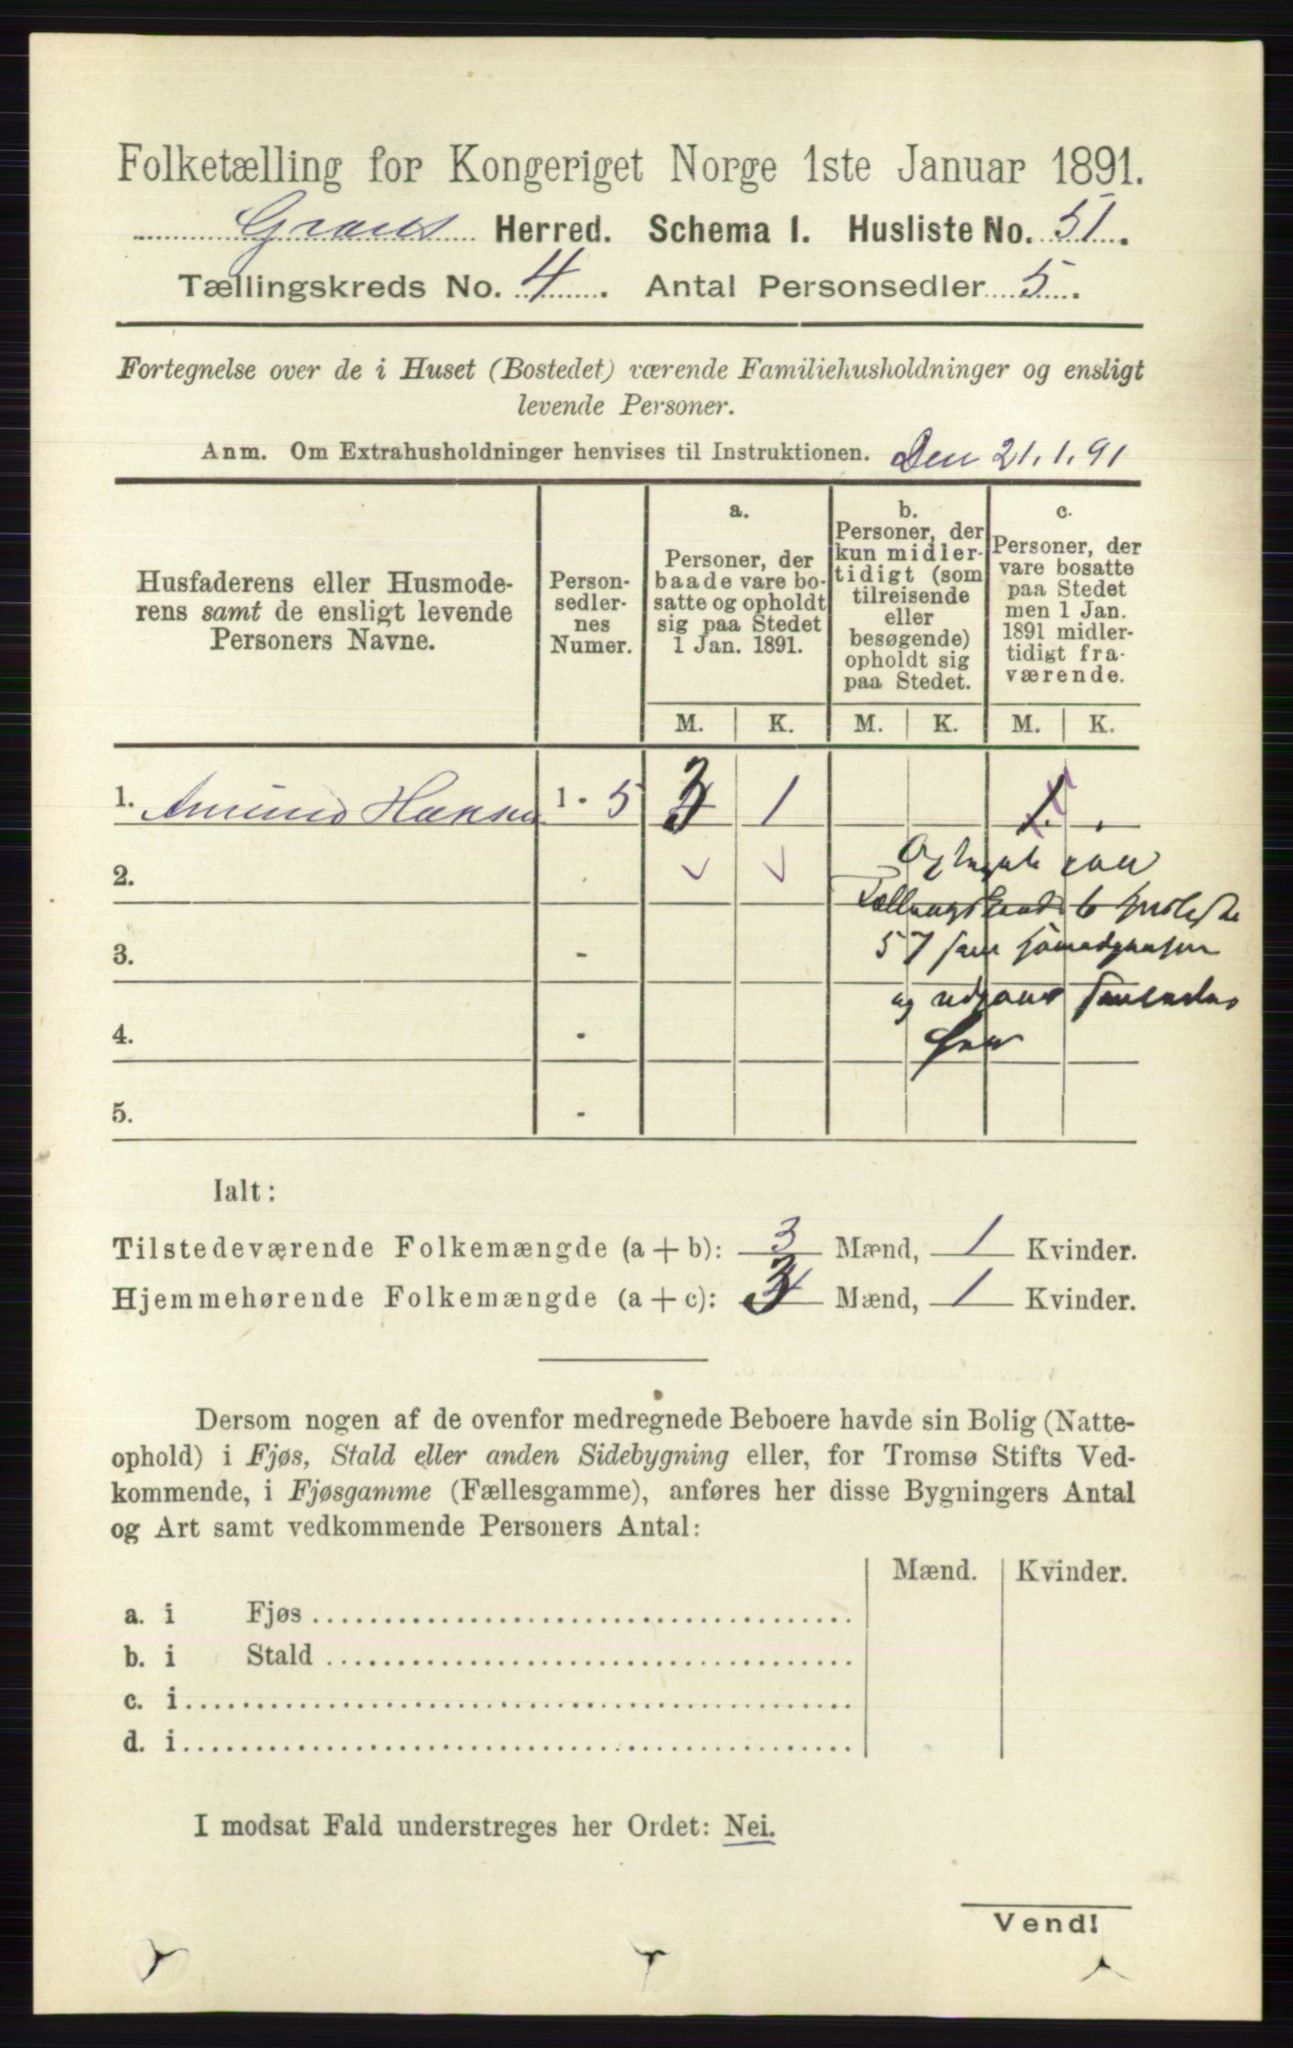 Folketælling for Kongeriget Norge 1ste Januar 1891.
Grans Herred. Schema 1. Husliste No. 51.
Tællingskreds No. 4. Antal Personsedler 5.
Fortegnelse over de i Huset (Bostedet) værende Familiehusholdninger og ensligt
levende Personer.
Anm. Om Extrahusholdninger henvises til Instruktionen. Den 21.1.91
Husfaderens eller Husmode-
rens samt de ensligt levende
Personers Navne.
Person-
sedler-
nes
Numer.
a.
Personer, der
baade vare bo-
satte og opholdt
sig paa Stedet
1 Jan. 1891.
b.
Personer, der
kun midler-
tidigt (som
tilreisende
eller
besøgende)
opholdt sig
paa Stedet.
c.
Personer, der
vare bosatte
paa Stedet
men 1 Jan.
1891 midler-
tidigt fra-
værende.
M. K. M. K. M. K.
1. Amund Hansen 1 - 5 3 1 1.
2.
Tællingskreds 6 Husliste
3. -
57
4. -
og
5. -
Ialt:
Tilstedeværende Folkemængde (a + b): 3 Mænd, 1 Kvinder.
Hjemmehørende Folkemængde (a + c): 3 Mænd, 1 Kvinder.
Dersom nogen af de ovenfor medregnede Beboere havde sin Bolig (Natte-
ophold) i Fjøs, Stald eller anden Sidebygning eller, for Tromsø Stifts Ved-
kommende, i Fjøsgamme (Fællesgamme), anføres her disse Bygningers Antal
og Art samt vedkommende Personers Antal:
Mænd. Kvinder.
a. i Fjøs
b. i Stald
c. i
d. i
I modsat Fald understreges her Ordet: Nei.
Vend!